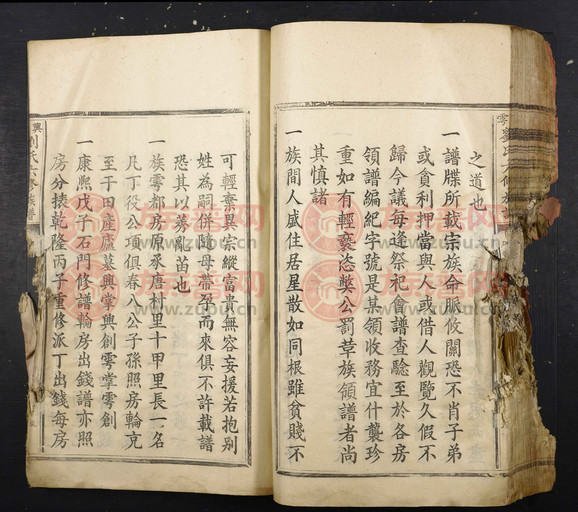 之道也
一譜牒所載宗族命脈攸關恐不肖子弟
或貪利押當與人或借人觀覽久假不
歸今議每逢祭祀會譜查驗至於各房
領譜編紀字號是某領收務宜什襲珍
重如有輕褻恣獘公罰草族領譜者尚
其慎諸
一族間人盛住居星散如同根雖貧賤不
可輕棄異宗縱富貴無容妄援若抱别
姓為嗣併隨母帶孕而來俱不許載譜
恐其以莠亂苗也
一族雩都房原承唐村里十甲里長一名
凡丁役公項俱春八公子孫照房輪充
至于田產廬墓興掌興創雩掌雩創
一康熙戊子石門修譜輪房出錢譜亦照
房分裱乾隆丙子重修派丁出錢每房
族古斋
www.zupu.cn